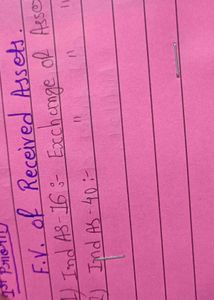 1st Priority
F.V. of Received Assets.
1) Ind AS-16:- Exchange of Asse
2) Ind AS-40:- " "